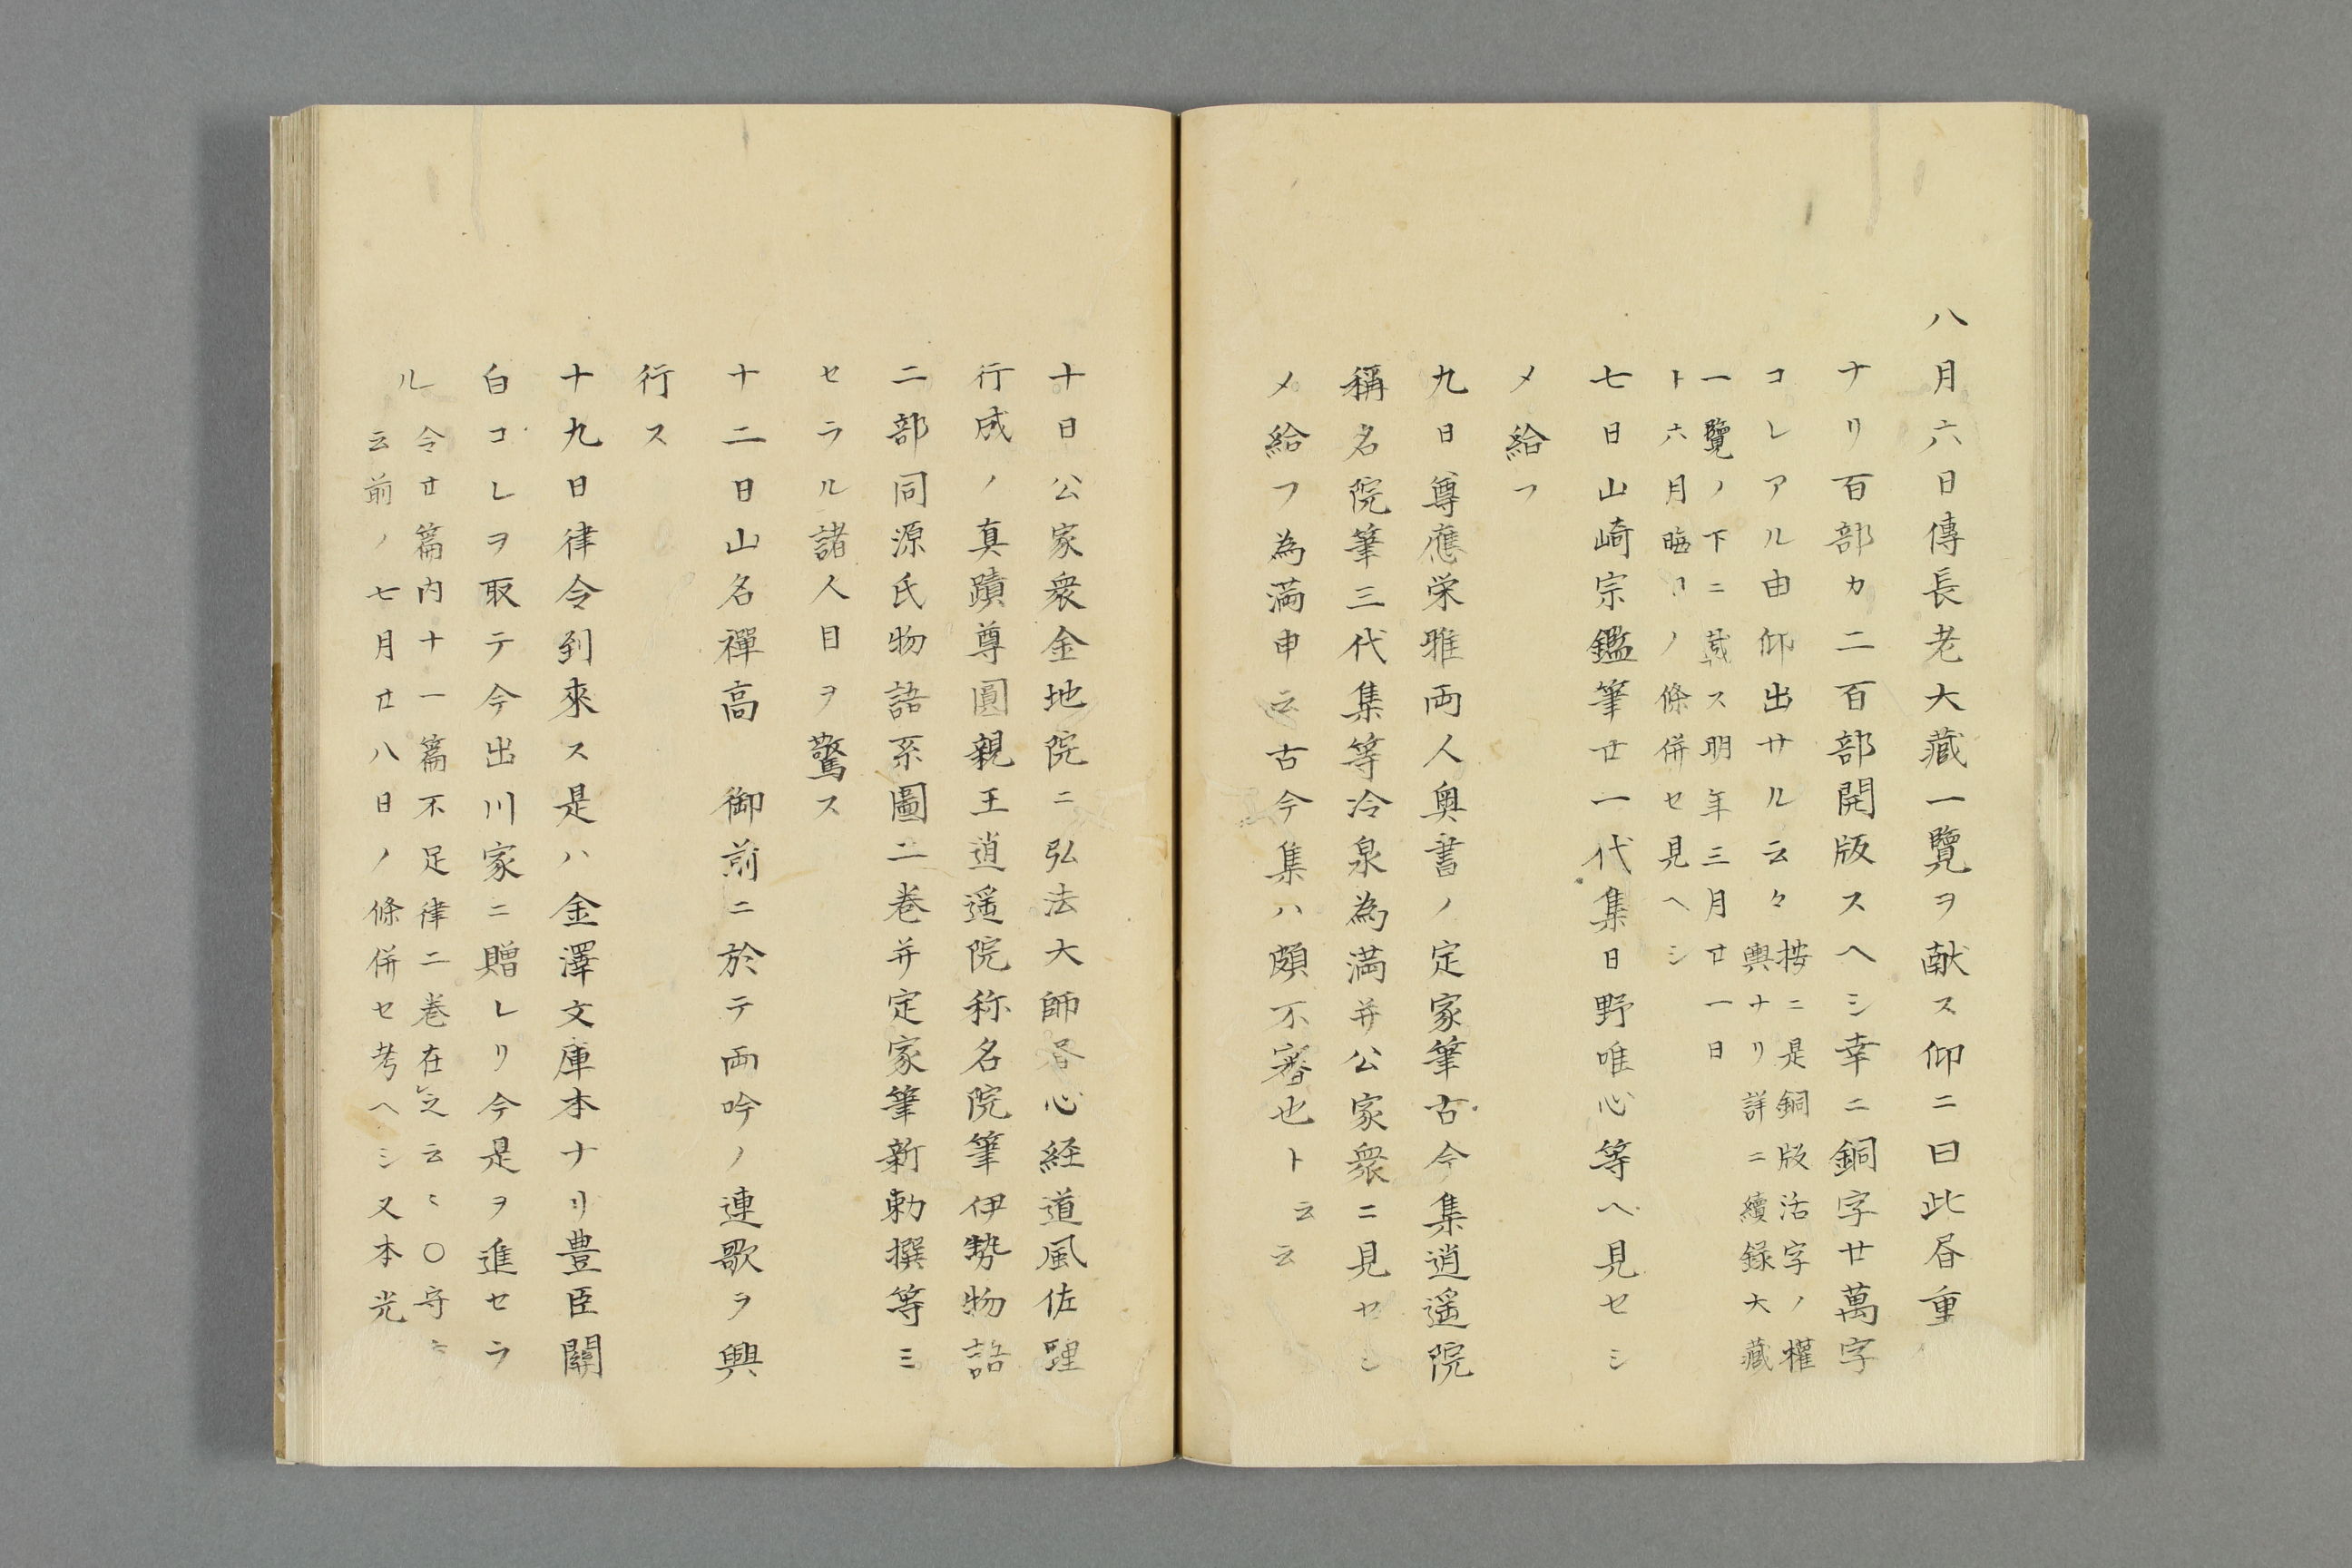 八月六日傳長老大藏一覽ヲ献ス仰ニ曰此㫺重
ナリ百部カ二百部開版スヘシ幸ニ銅字廿萬字
コレアル由仰出サル云々
按ニ是銅版活字ノ権
輿ナリ詳ニ續録大藏
一覽ノ下ニ載ス明年三月廿一日
ト六月晦日ノ條併セ見ヘシ
七日山崎宗鑑筆廿一代集日野唯心等ヘ見セシ
メ給フ
九日尊應栄雅両人奥書ノ定家筆古今集逍遥院
稱名院筆三代集等冷泉為満并公家衆ニ見セシ
メ給フ為満申云古今集ハ頗不審也ト云云
十日公家衆金地院ニ弘法大師㫺心経道風佐理
行成ノ真蹟尊圓親王逍遥院称名院筆伊勢物語
二部同源氏物語系圖二巻并定家筆新勅撰等ミ
セラル諸人目ヲ驚ス
十二日山名禪高　御前ニ於テ両吟ノ連歌ヲ興
行ス
十九日律令到來ス是ハ金澤文庫本ナリ豊臣關
白コレヲ取テ今出川家ニ贈レリ今是ヲ進セラ
ル
令廿篇内十一篇不足律二巻在レ之云〻〇守
云前ノ七月廿八日ノ條併セ考ヘシ又本光